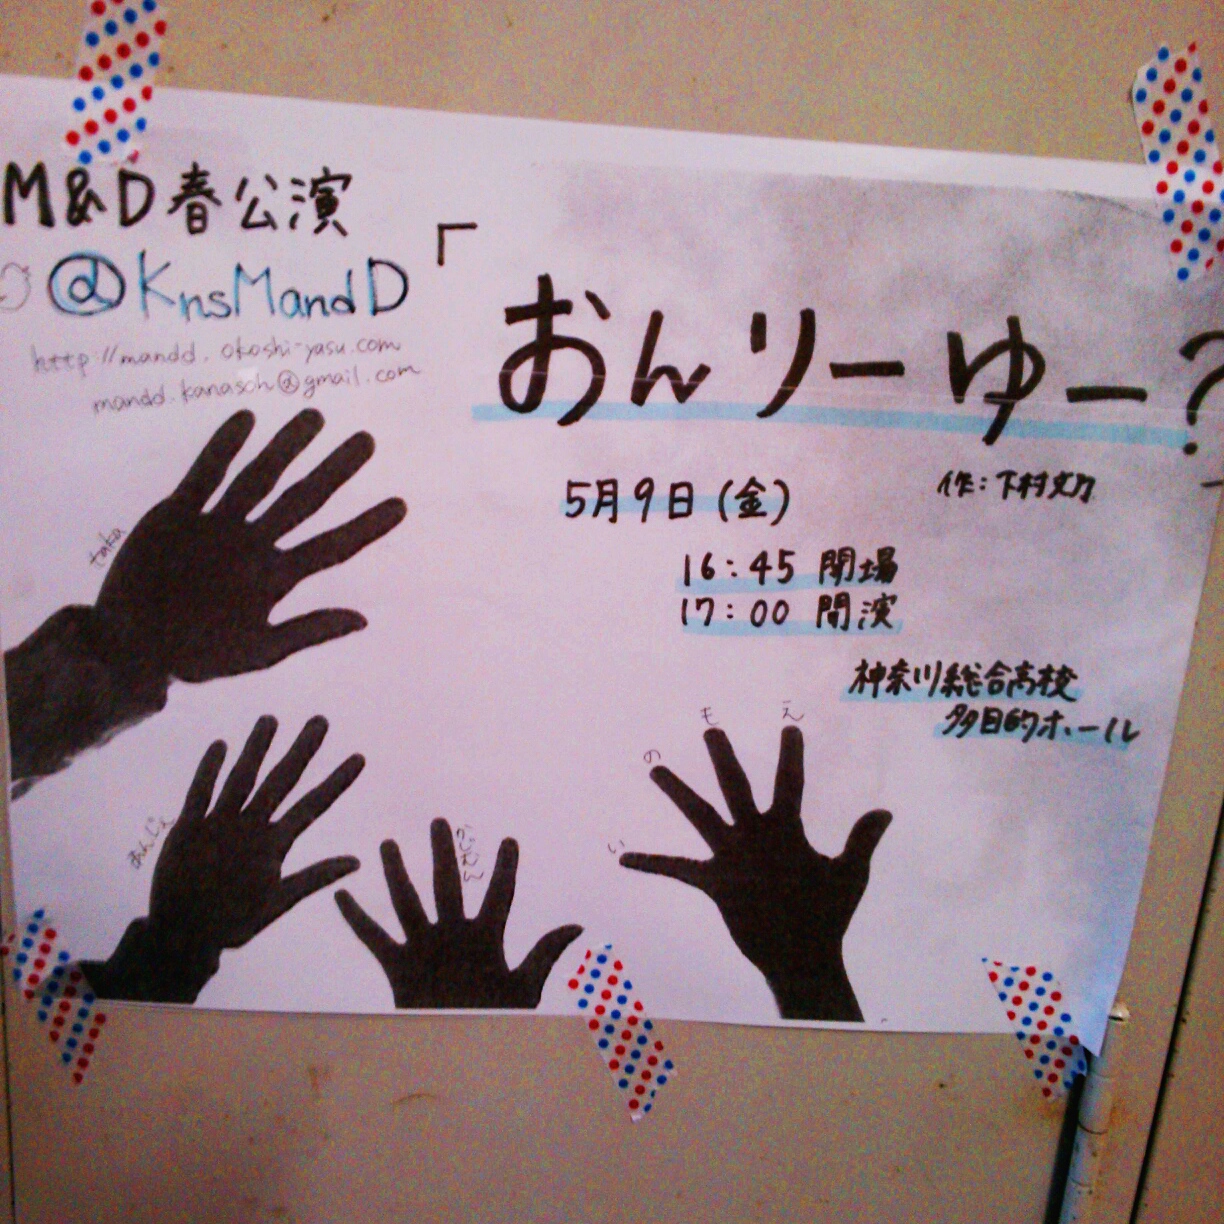 M&D春公演
@KnsMandD
http://mandd.okoshi-yasu.com
mandd.kanasch@gmail.com
「おんリーゆー?
作:下村文乃
5月9日(金)
16:45 開場
17:00 開演
神奈川総合高校
多目的ホール
taka
あんじぇ
い
の
も
え